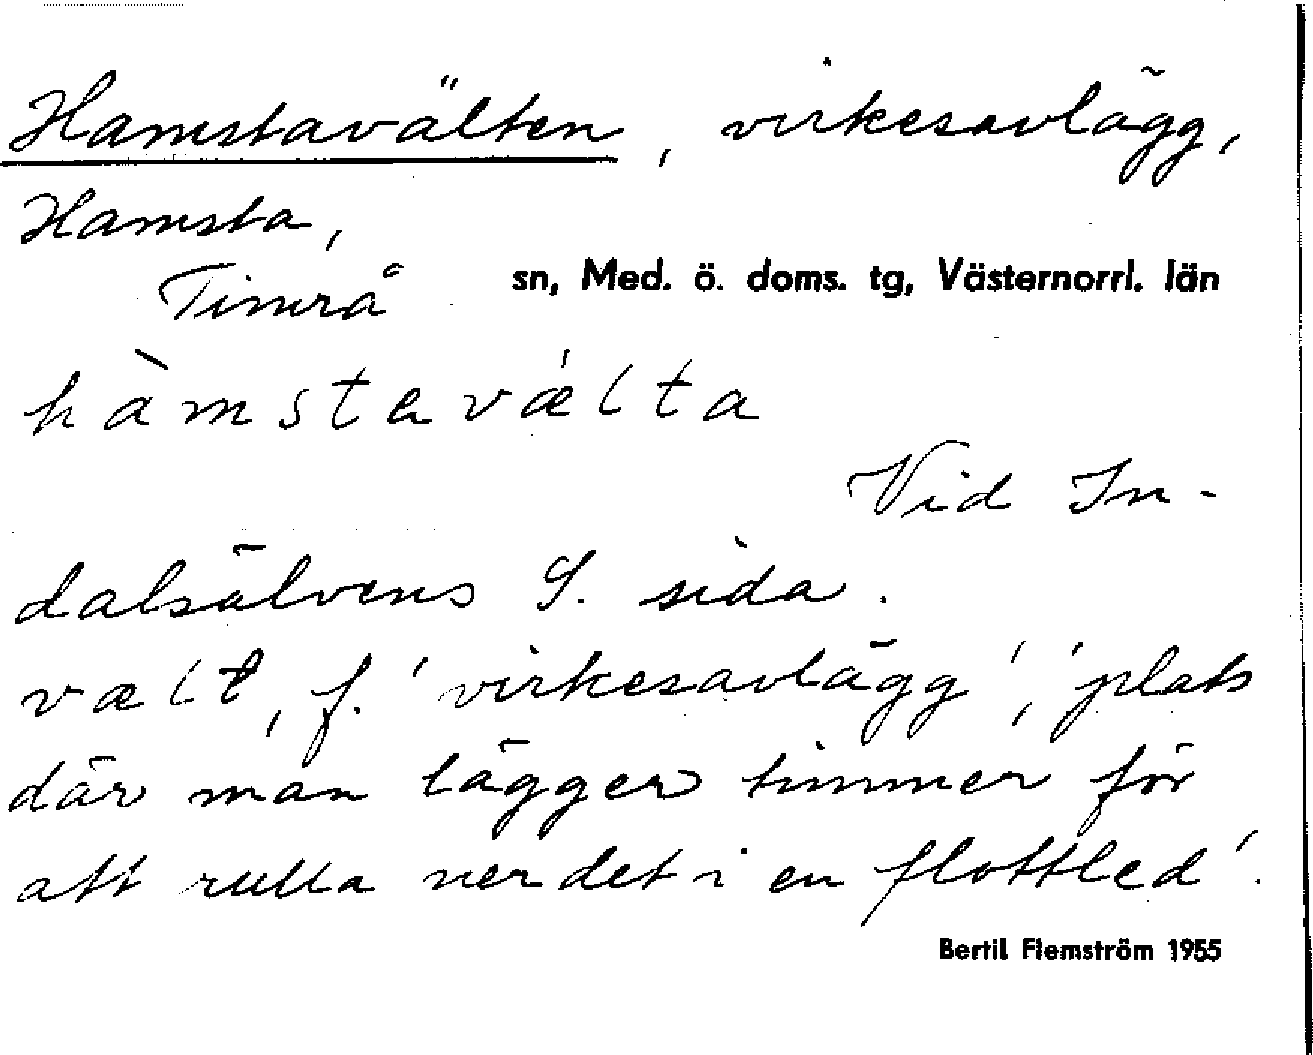 Hamstavälten, virkesavlägg,
Hamsta,
Timrå sn, Med. ö. doms. tg, Västernorrl. län
hàmstavǽlta
Vid In-
dalsälvens S. sida.
vælt, f. 'virkesavlägg', 'plats
där man lägger timmer för
att rulla ner det i en flottled'.
Bertil Flemström 1955